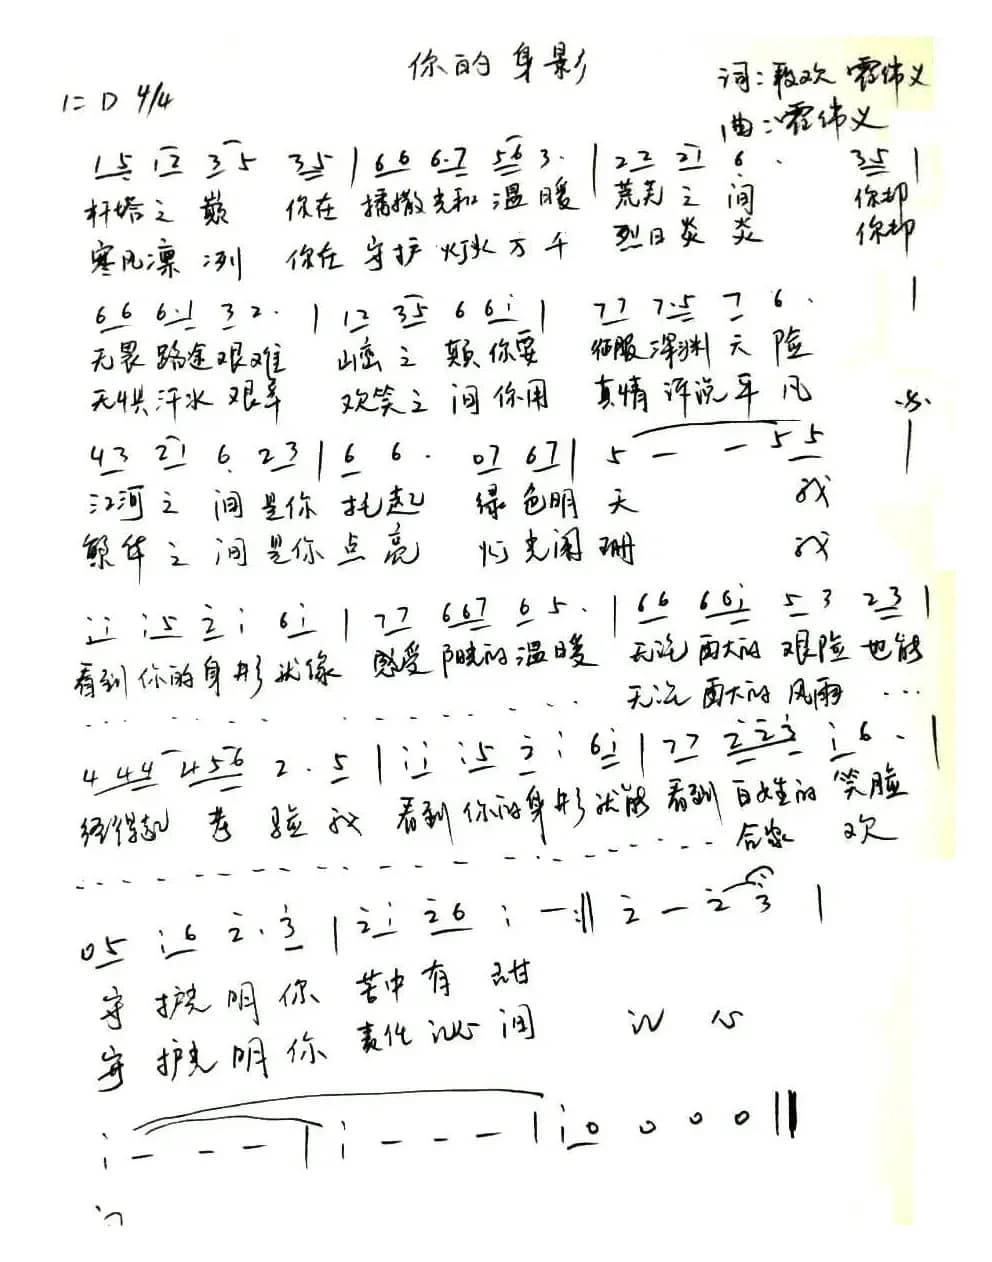 你的身影
1=D 4/4
词:段欢 霍伟义
曲:霍伟义
15 12 35 35 | 66 6·7 56 3· | 22 21 6 · 35 |
杆塔之巅 你在播撒光和温暖 荒芜之间 你却
寒风凛冽 你在守护灯火万千 烈日炎炎 你却
66 6·1 32· | 12 35 6 61 | 77 7·5 7 6· |
无畏路途艰难 山峦之巅你要 征服深渊天险
无惧汗水艰辛 欢笑之间你用 真情诉说平凡
43 21 6 23 | 6 6· 07 67 | 5 — — 5 5 |
江河之间是你托起 绿色明天 我
繁华之间是你点亮 灯光阑珊 我
11 15 2 1 61 | 77 667 6 5· | 66 661 5 3 23 |
看到你的身形就像 感受阳光的温暖 无论再大的艰险也能
无论再大的风雨 ...
4 44 456 2· 5 | 11 15 2 1 61 | 77 223 1 6· |
经得起考验我 看到你的身形就能看到百姓的笑脸
合家欢
05 16 2· 3 | 21 26 1 — :|| 2 — 2 3 |
守护光明你 苦中有甜
守护光明你 责任沁润 心
1 - - - | 1 - - - | 10 0 0 0 ||